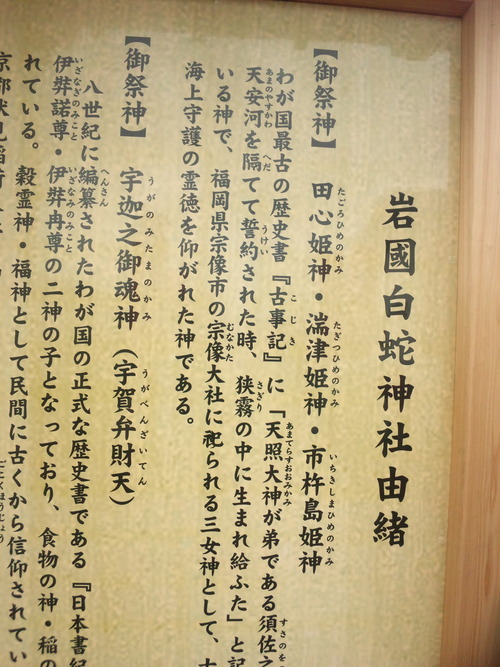 岩國白蛇神社由緒
【御祭神】 田心姫神・湍津姫神・市杵島姫神
わが国最古の歴史書『古事記』に「天照大神が弟である須佐之
天安河を隔てて誓約された時、狭霧の中に生まれ給ふた」と記
いる神で、福岡県宗像市の宗像大社に祀られる三女神として、
海上守護の霊徳を仰がれた神である。
【御祭神】 宇迦之御魂神（宇賀弁財天）
八世紀に編纂されたわが国の正式な歴史書である『日本書紀
伊弉諾尊・伊弉冉尊の二神の子となっており、食物の神・稲の
れている。穀霊神・福神として民間に古くから信仰されてい